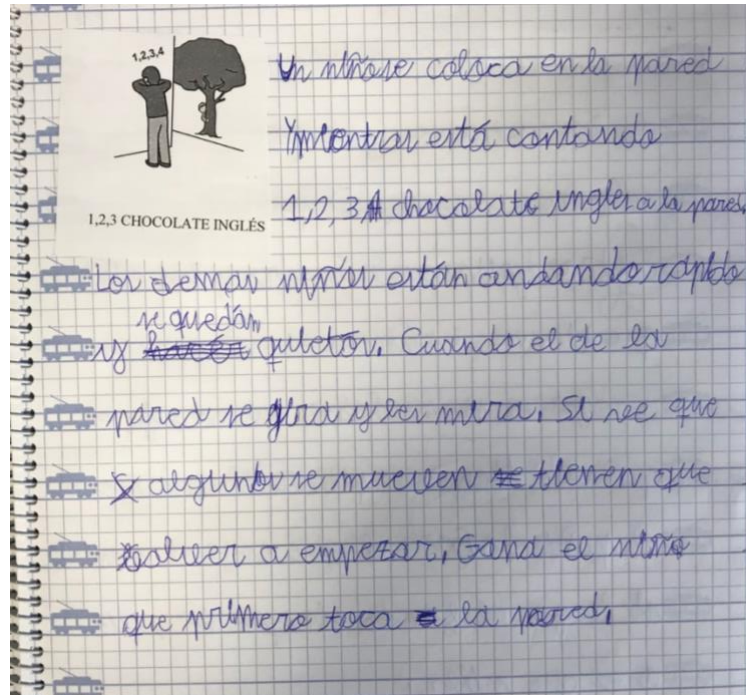 1,2,3,4
1,2,3 CHOCOLATE INGLÉS
Un niño se coloca en la pared
Y mientras está contando
1, 2, 3 chocolate ingles a la pared.
Los demas niños están andando rápido
se quedán
y quietos. Cuando el de la
pared se gira y les mira. Si vee que
algunos se mueven tienen que
volver a empezar. Gana el niño
que primero toca la pared.